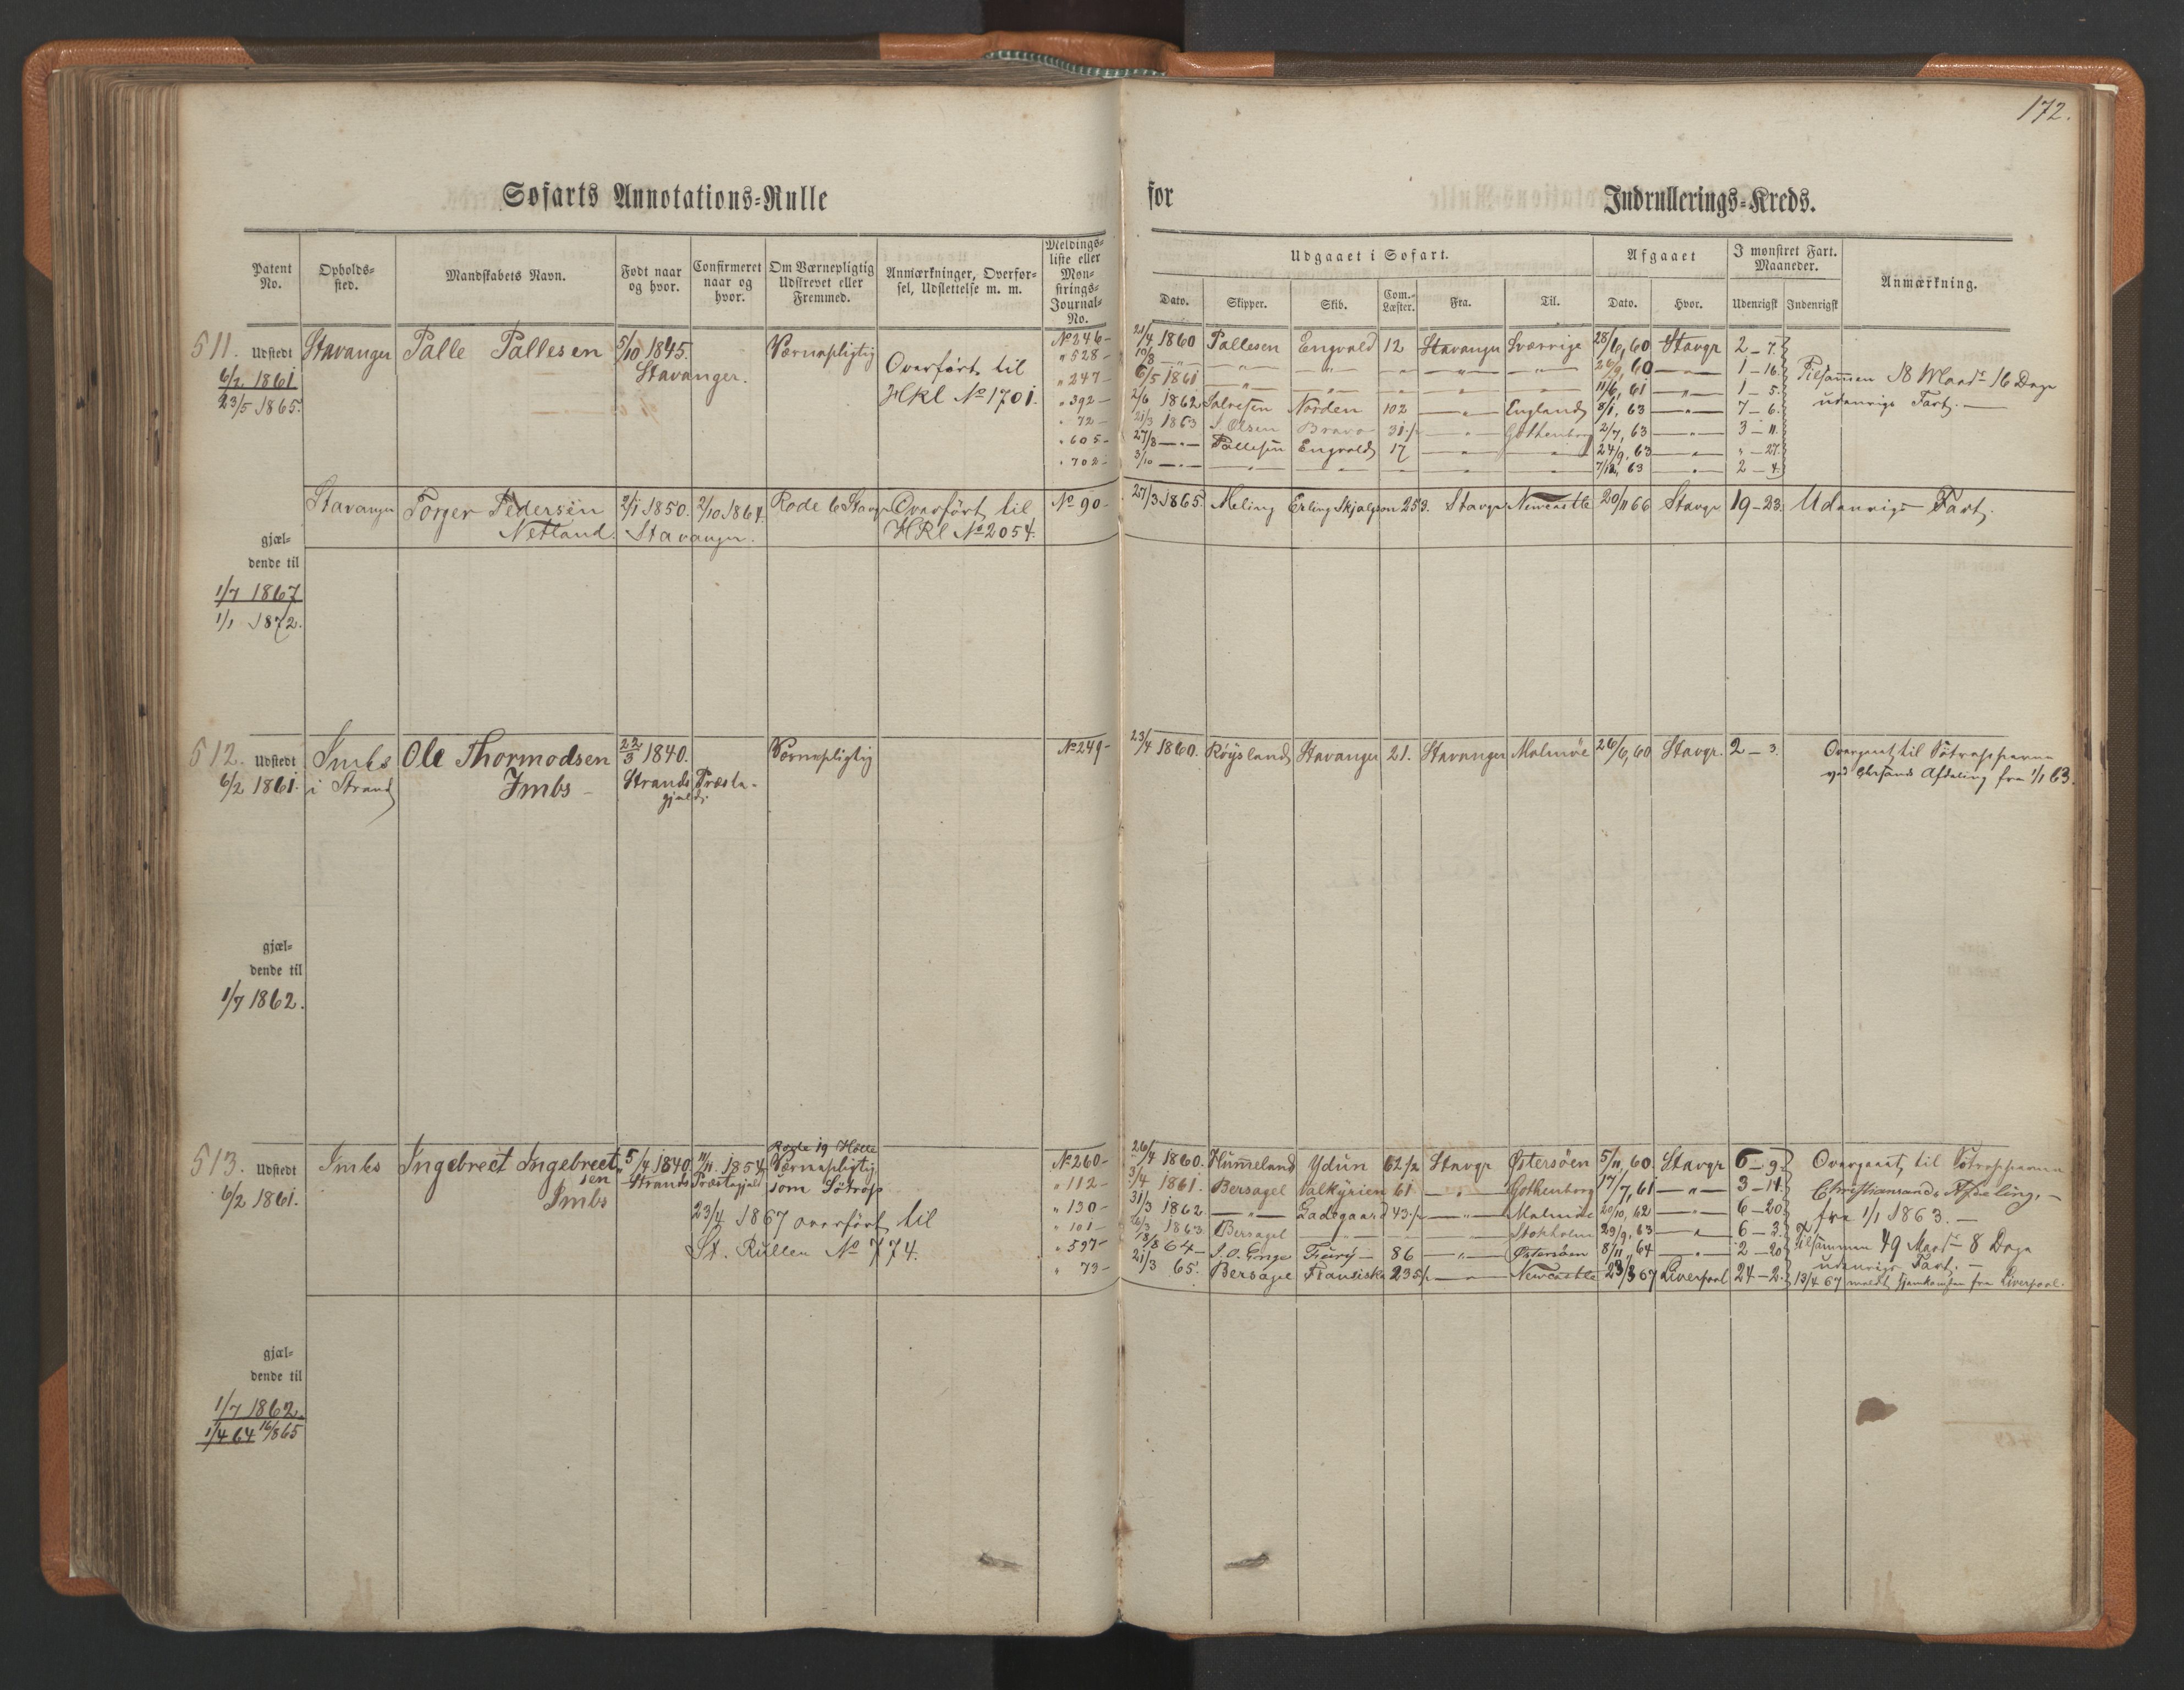 172.
Søfarts Annotations-Rulle for Indrullerings-Kreds.
Patent No. Opholds-sted. Mandskabets Navn. Født naar og hvor. Confirmeret naar og hvor. Om Værnepligtig Udskrevet eller Fremmed. Anmærkninger, Overførsel, Udslettelse m. m. Meldings-liste eller Mønstrings-Journal-No.
Udgaaet i Søfart. Afgaaet I mønstret Fart. Maaneder. Anmærkning.
Dato. Skipper. Skib. Com.-Læster. Fra. Til. Dato. Hvor. Udenrigsk Indenrigsk
511. Udstedt 6/2 1861 23/5 1865.
Stavanger Palle Pallesen 5/10 1845. Stavanger. Værnepligtig Overført til HRl No 1701.
No 246 - 21/4 1860 Pallesen Engvald 12 Stavanger Sverrige 28/6, 60 Stavgr 2 - 7.
" 528 - 10/8 — " — — " — — " — " — " — — " — 26/9, 60 — " — 1 - 16.
" 247 - 6/5 1861 " " " " " 11/6, 61 — " — 1 - 5.
" 392 - 2/6 1862 Salvesen Norden 102 — " — England 8/1, 63 — " — 7 - 6.
" 72 - 21/3 1863 S. Olsen Bravo 31 — " — Gothenborg 2/7, 63 — " — 3 - 11.
" 605 - 27/8 — " — Pallesen Engvald 17 — " — — " — 24/9, 63 — " — " - 27.
" 702 - 3/10 — " — — " — — " — " — " — — " — 7/12, 63 — " — 2 - 4.
Tilsammen 18 Maadr 16 Dage
udenrigs Fart. —
Stavanger Torger Pedersen Netland. 2/1 1850. Stavanger. 2/10 1864. Rode 6 Stavgr Overført til HRl No 2054.
No 90 - 27/3 1865. Meling Erling Skjalgson 253. Stavgr Newcastle 20/11 66 Stavgr 19 - 23. Udenrigs Fart.
gjæl-
dende til
1/7 1867
1/1 1872.
512. Udstedt 6/2 1861.
Imbs i Strand Ole Thormodsen Imbs - 22/3 1840. Strands Præstegjæld. Værnepligtig
No 249 - 23/4 1860. Röysland Stavanger 21. Stavanger Malmöe 26/6, 60 Stavgr. 2 - 3.
Overgaaet til Søtropperne
ved Chrsands Afdeling fra 1/1 63.
gjæl-
dende til
1/7 1862.
513. Udstedt 6/2 1861.
Imbs Ingebrect Ingebrectsen Imbs 5/4 1840. 11/11. 1854. Strands Præstegjæld
Rode 19 Holle
Værnepligtig
som Søtrop
23/4 1867 overført til
St. Rullen No 774.
No 260 - 26/4 1860. Hummeland Ydun 62 1/2 Stavgr Østersöen 5/11, 60 Stavgr 6 - 9.
" 112 - 3/4 1861. Bersagel Valkyrien 61 — " — Gothenborg 17/7, 61 — " — 3 - 14.
" 130 - 31/3 1862 — " — Ladegaard 43 — " — Malmöe 20/10, 62 — " — 6 - 20.
" 101 - 26/3 1863 Bersagel — " — Stokholm 29/9, 63 — " — 6 - 3.
" 597 - 18/8 64 - Fury - 86 — " — Østersöen 8/11, 64 — " — 2 - 20.
" 73 - 21/3 65. Bersagel Fransiska 235 — " — Newcastle 23/3 67 Liverpool 24 - 2.
Overgaaet til Søtropperne
Christiansands Afdeling. -
fra 1/1 1863. -
Tilsammen 49 Maadr 8 Dage
udenrigs Fart. -
13/4 67 meldt hjemkommen fra Liverpool.
gjæl-
dende til
1/7 1862.
1/4 64 16/8 65